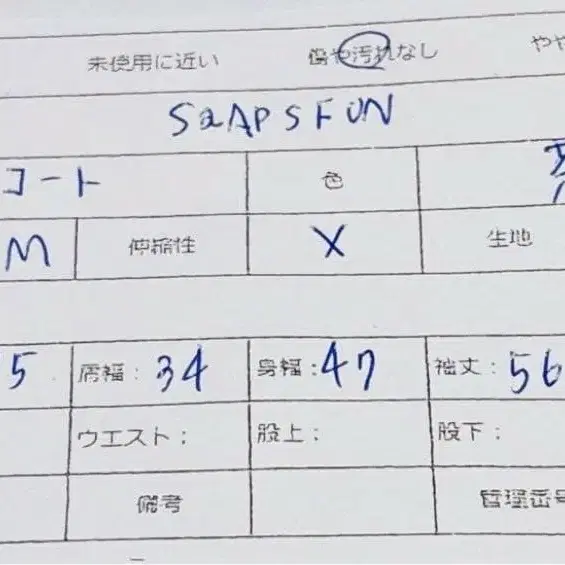 未使用に近い 傷や汚れなし やや
SaAPSFUN
コート 色
M 伸縮性 X 生地
5 肩幅：34 身幅：47 袖丈：56
ウエスト： 股上： 股下：
備考 管理番号